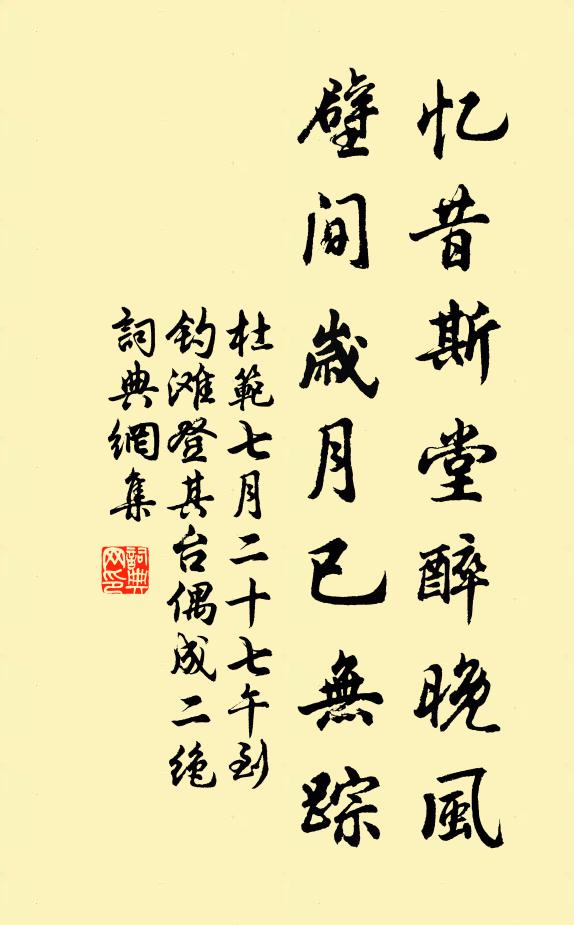 忆昔斯堂醉晚風
壁间歲月已無踪
杜範七月二十七午到
钓滩登其台偶成二绝
詞典網集
詞典网印